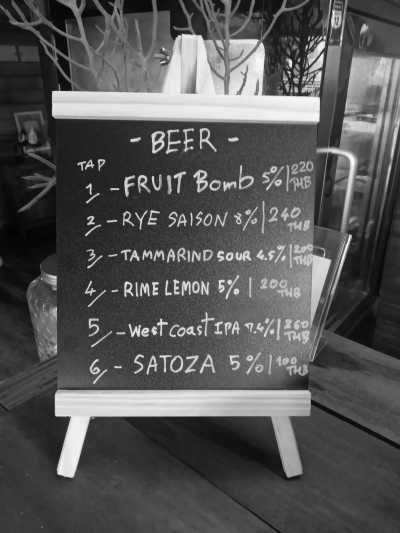 - BEER -
TAP
1 - FRUIT Bomb 5% | 220 THB
2 - RYE SAISON 8% | 240 THB
3 - TAMMARIND SOUR 4.5% | 200 THB
4 - RIME LEMON 5% | 200 THB
5 - West coast IPA 7.4% | 260 THB
6 - SATOZA 5% | 100 THB